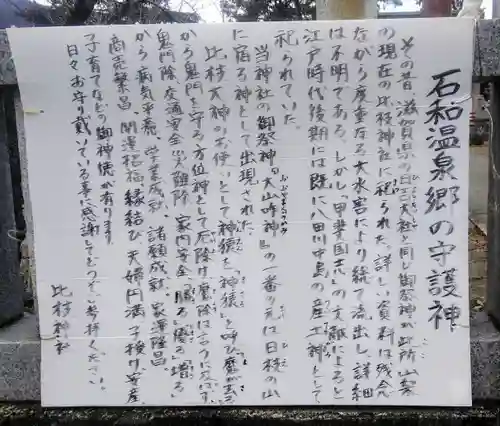 石和温泉郷の守護神
その昔、滋賀県の日吉大社と同じ御祭神が此所山梨
の現在の比枝神社に祀られた。詳しい資料は残念
ながら度重なる大水害により総て流出し、詳細
は不明である。しかし「甲斐国志」の文献によると
江戸時代後期には既に八田川中島の産土神として
祀られていた。
当神社の御祭神「大山咋神」の一番の元は日枝の山
に宿る神として出現された。
比枝大神のお使いとして神猿を「神猿」と呼び魔が去る
から鬼門を守る方位神として厄除け魔除はもうにに及ばず、
鬼門除、交通安全、火難除、家内安全、「勝る」「優る」「増る」
から病気平癒、学業成就、諸願成就、家運隆昌
商売繁昌、開運招福、縁結び、夫婦円満、子授け、安産
子育てなどの御神徳が有ります。
日々お守り戴いている事に感謝してどうぞご参拝ください。
比枝神社